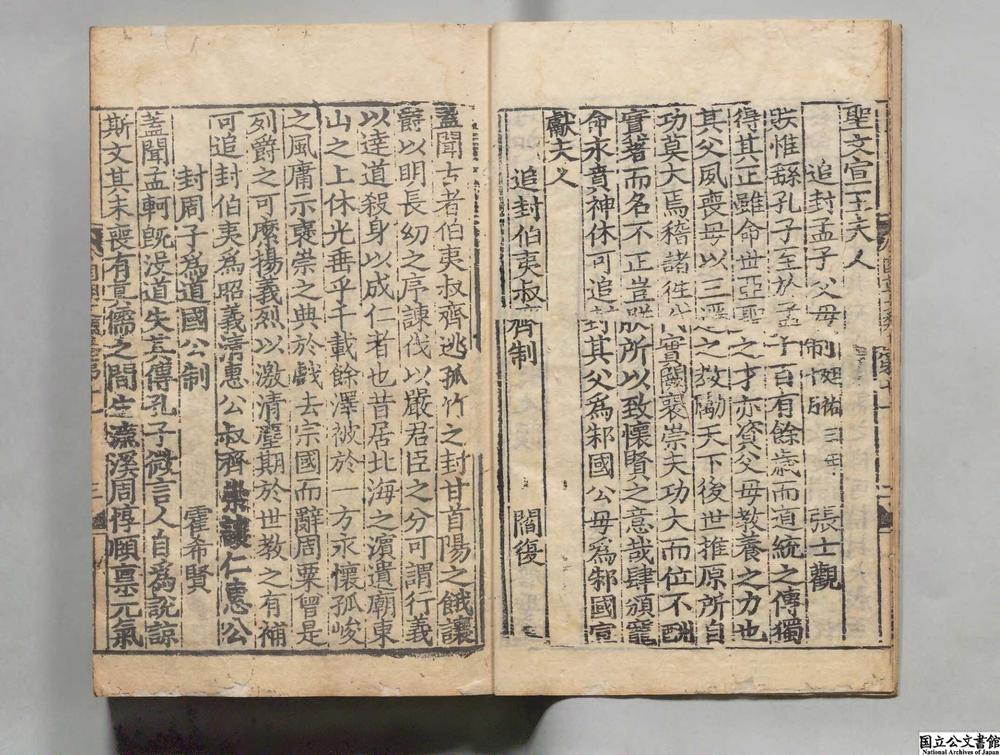 聖文宣王夫人
追封孟子父母制 延祐三年十月 張士觀
朕惟繇孔子至於孟子百有餘歲而道統之傳獨
得其正雖命世亞聖之才亦資父母教養之力也
其父夙喪母以三遷之教勵天下後世推原所自
功莫大焉稽諸往代實闕褒崇夫功大而位不酬
實著而名不正豈朕所以致懷賢之意哉肆頒寵
命永賁神休可追封其父爲邾國公母爲邾國宣
獻夫人
追封伯夷叔齊制 閻復
蓋聞古者伯夷叔齊逃孤竹之封甘首陽之餓讓
爵以明長幼之序諫伐以嚴君臣之分可謂行義
以達道殺身以成仁者也昔居北海之濱遺廟東
山之上休光垂乎千載餘澤被於一方永懷孤峻
之風庸示褒崇之典於戲去宗國而辭周粟曾是
列爵之可縻揚義烈以激清塵期於世教之有補
可追封伯夷爲昭義清惠公叔齊崇讓仁惠公
封周子爲道國公制 霍希賢
蓋聞孟軻旣没道失其傳孔子微言人自爲說諒
斯文其未喪有真儒之間生濂溪周惇頤禀元氣
国立公文書館
National Archives of Japan